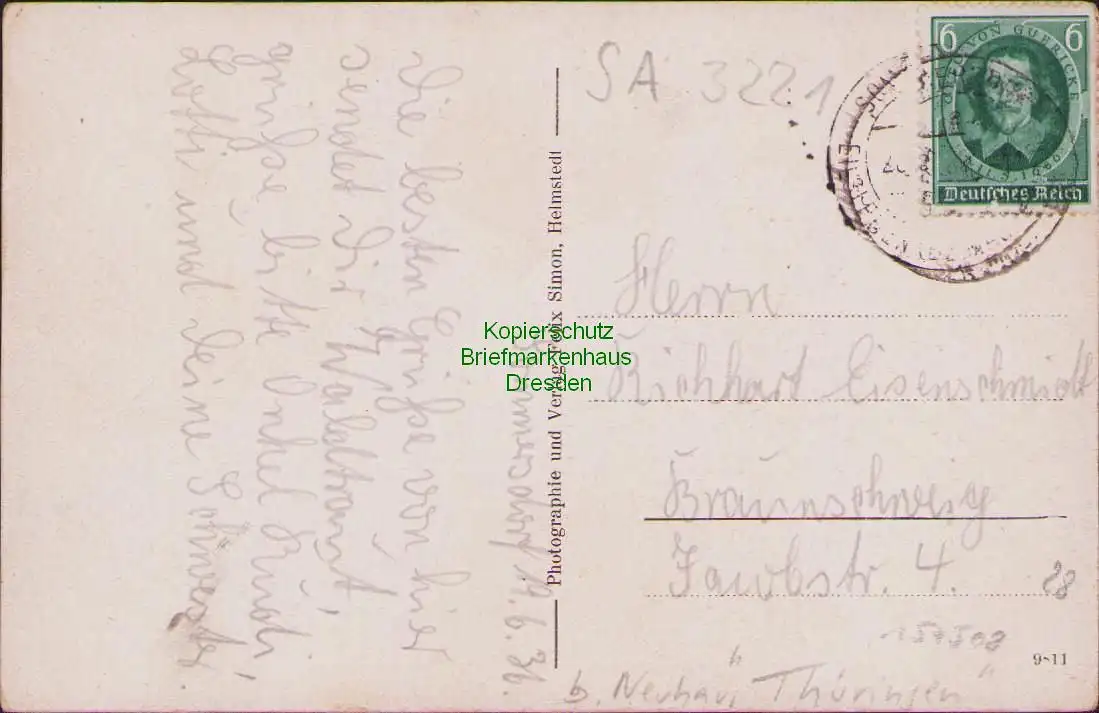 Die besten Grüße von hier
sendet dir Waltraut,
grüße bitte Onkel Rudi,
Lotti und deine Schwester
14.6.36.
Photographie und Verlag Felix Simon, Helmstedt
SA 3221
6 6
OTTO VON GUERICKE
Deutsches Reich
Herrn
Richhart Eisenschmidt
Braunschweig
Jakobstr. 4.
28
157508
9-11
b. Neuhaus, "Thüringen"
Kopierschutz
Briefmarkenhaus
Dresden